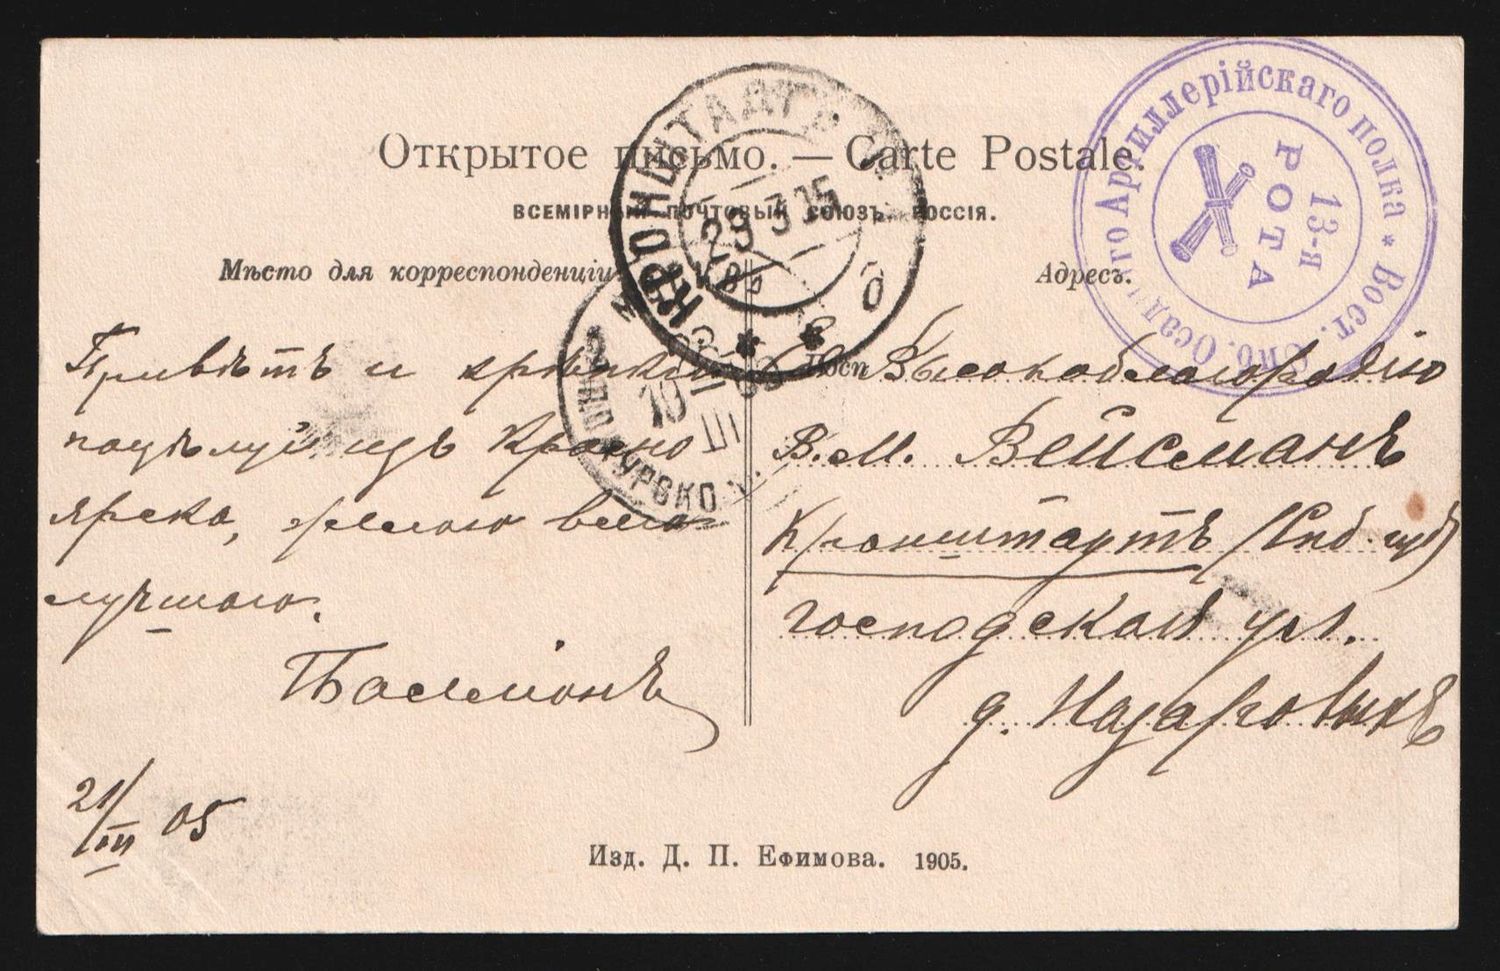 Открытое письмо. — Carte Postale.
ВСЕМІРНЫЙ ПОЧТОВЫЙ СОЮЗЪ РОССІЯ.
Мѣсто для корреспонденціи
Адресъ.
КРОНШТАДТЪ
29 3 05
Вост. Сиб. Осаднаго Артиллерійскаго полка *
13-я
РОТА
10
III
Привѣтъ и
поцѣлуй изъ Красно
ярска, желаю всего
лучшаго.
21/III 05
Высокоблагородію
В. М. Вейсманъ
Кронштартъ (Спб. губ)
Господская ул.
д. Назаровыхъ
Изд. Д. П. Ефимова. 1905.